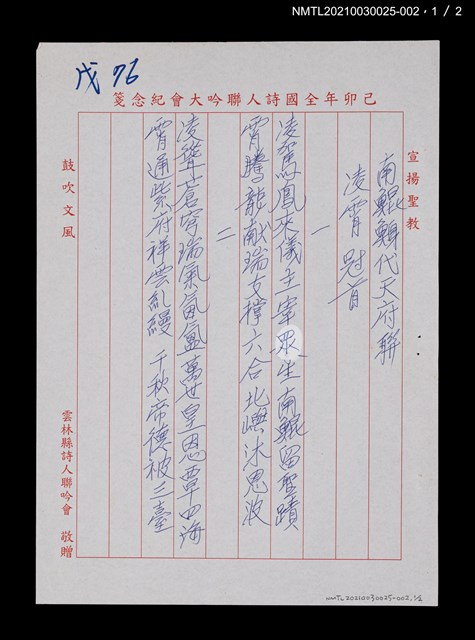 NMTL20210030025-002，1 / 2
戊 76
己卯年全國詩人聯吟大會紀念箋
宣揚聖教
南鯤鯓代天府聯
凌霄 冠首
一
凌駕鳳來儀主宰眾生南鯤留聖蹟
霄騰龍献瑞支撐六合北嶼沐恩波
二
凌聳蒼穹瑞氣氤氳萬世皇恩覃四海
霄通紫府祥雲乱縵千秋帝德被三臺
鼓吹文風
雲林縣詩人聯吟會 敬贈
NMTL20210030025-002, 1/2